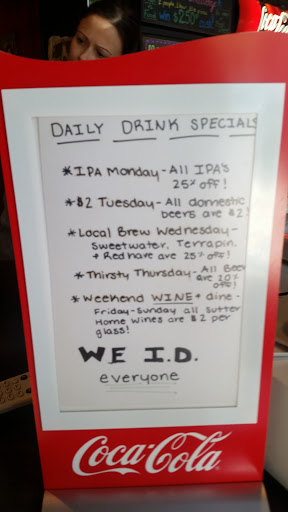 DAILY DRINK SPECIALS
*IPA Monday - All IPA's
25% off!
*$2 Tuesday - All domestic
beers are $2!
*Local Brew Wednesday -
Sweetwater, Terrapin,
+ Redhare are 25% off!
*Thirsty Thursday - All Beer
are 20%
off!
*Weekend WINE + dine -
Friday - Sunday all Sutter
Home Wines are $2 per
glass!
WE I.D.
everyone
Coca-Cola